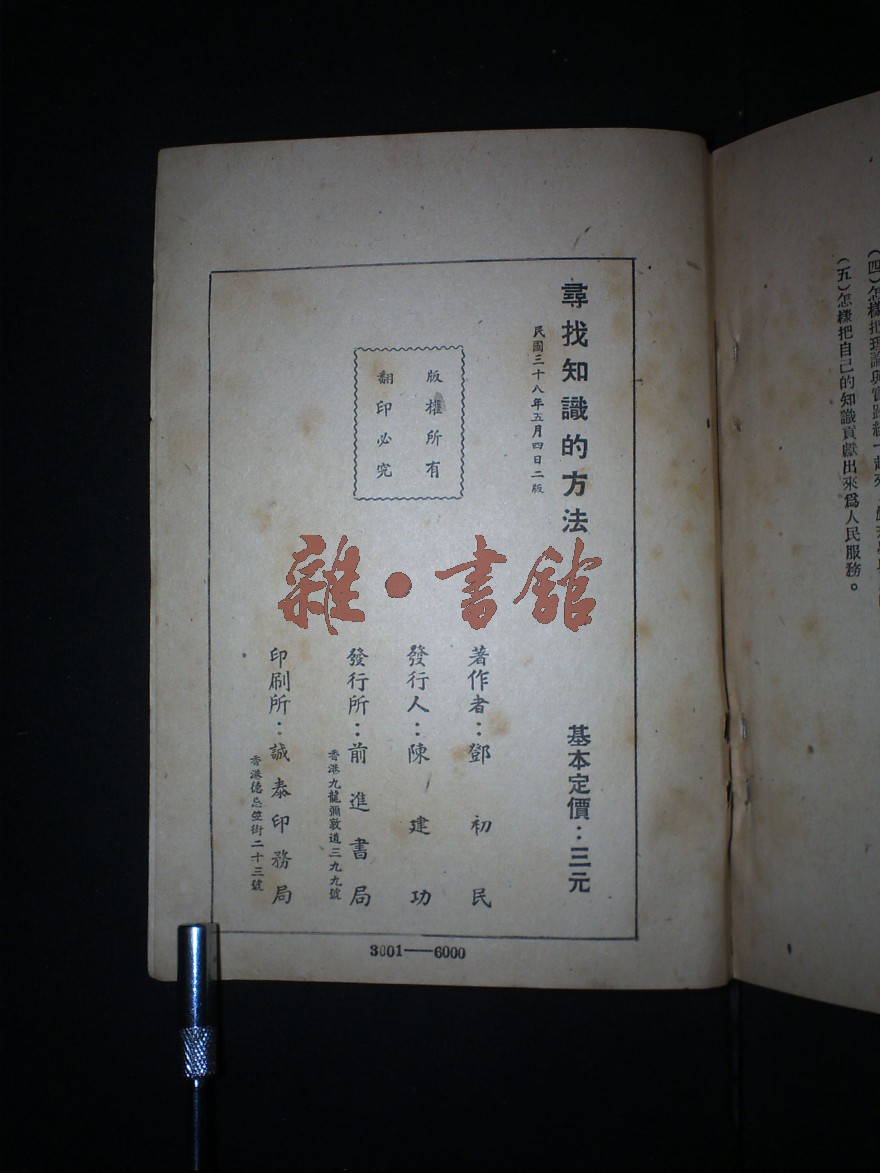 (四)怎樣把理論與實踐統一起來
(五)怎樣把自己的知識貢獻出來爲人民服務。
尋找知識的方法
民國三十八年五月四日二版
基本定價：三元
版權所有
翻印必究
雜·書館
著作者：鄧初民
發行人：陳建功
發行所：前進書局
香港九龍彌敦道三九九號
印刷所：誠泰印務局
香港德忌笠街二十三號
3001——6000